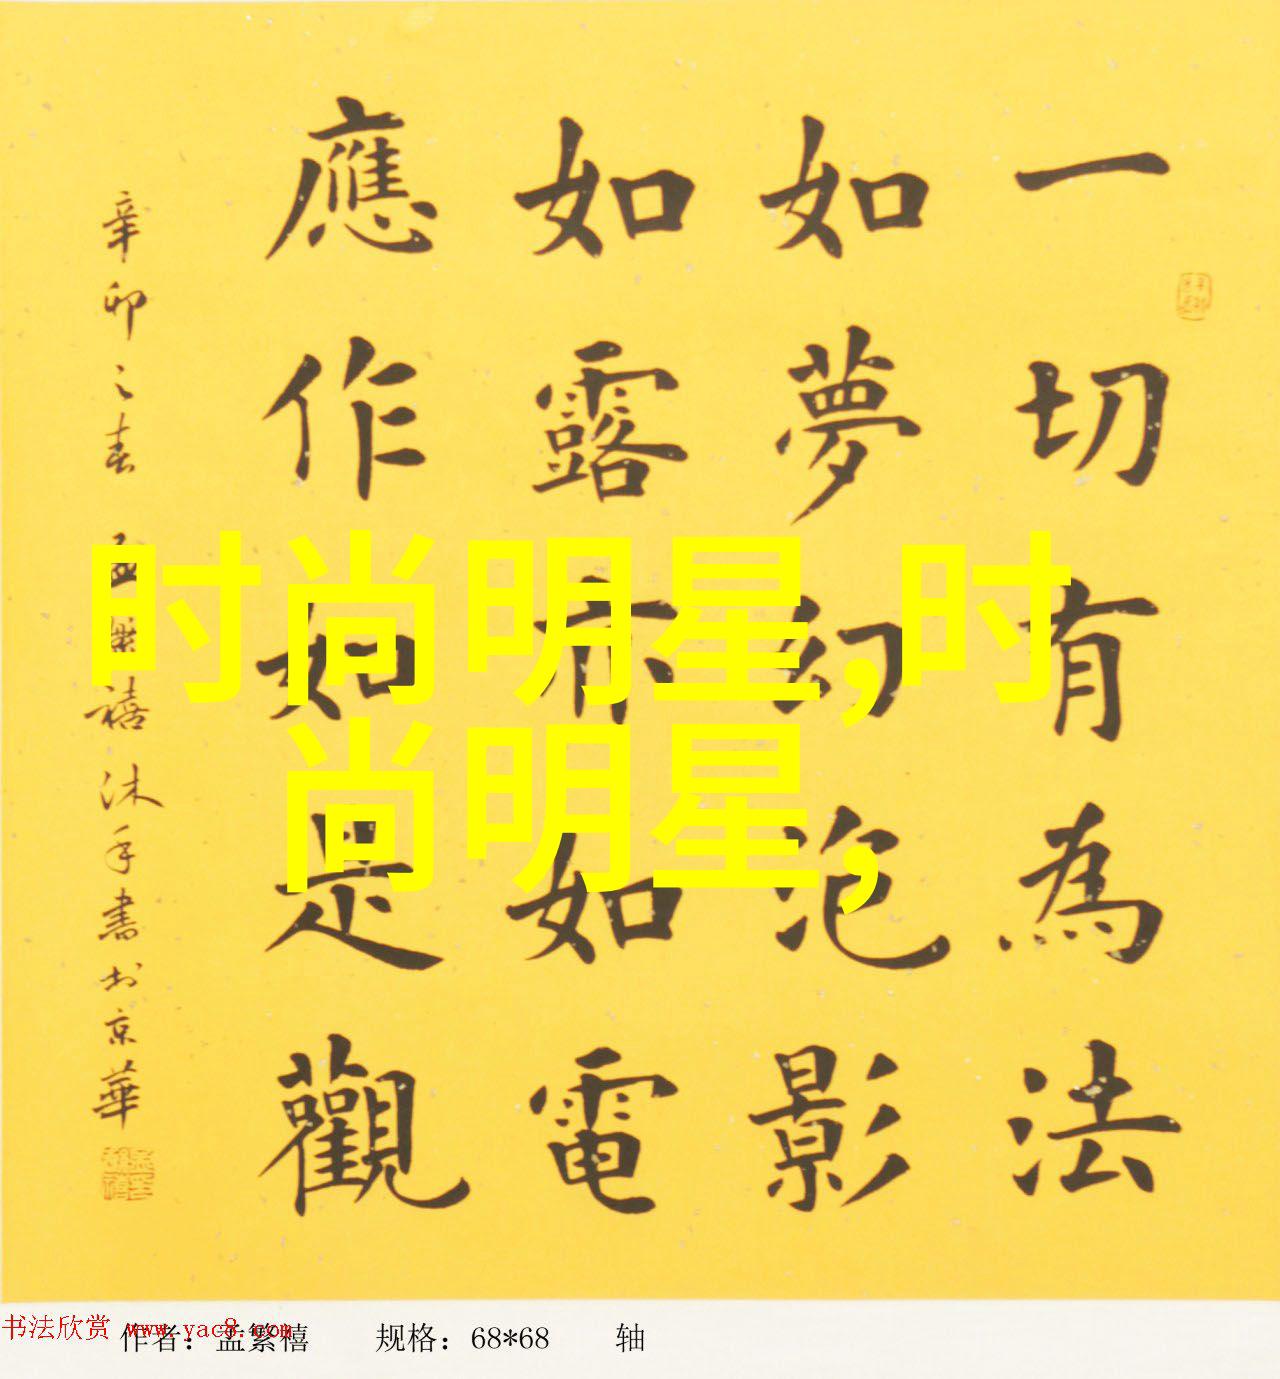 一切有為法
如夢幻泡影
如露亦如電
應作如是觀
辛卯之春 孟繁禧沐手書於京華
时尚明星,时
尚明星,
书法欣赏 www.yac8.com
作者：孟繁禧 规格：68*68 轴